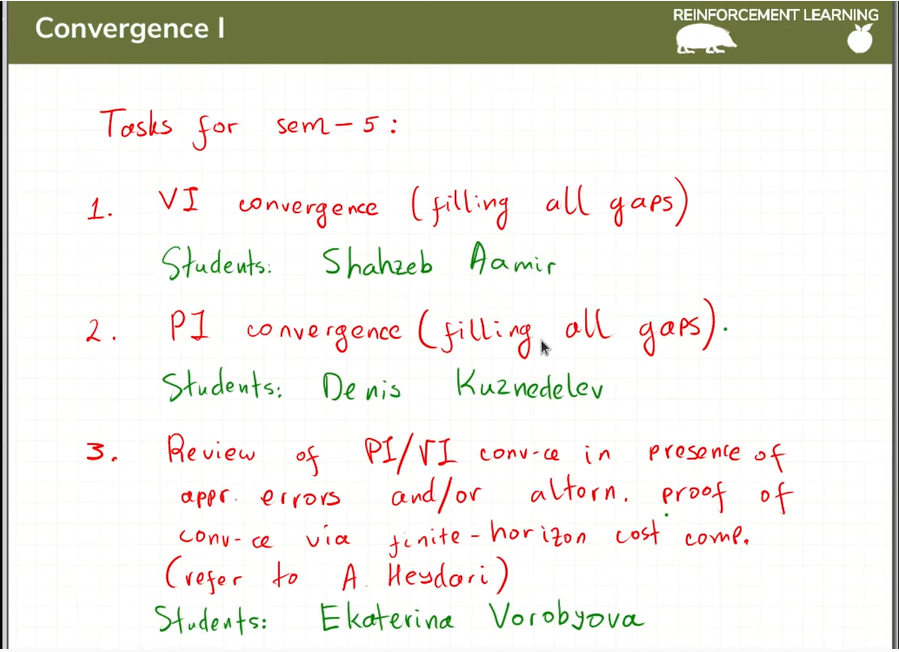 Convergence I
REINFORCEMENT LEARNING
Tasks for sem-5:
1. VI convergence (filling all gaps)
Students: Shahzeb Aamir
2. PI convergence (filling all gaps).
Students: Denis Kuznedelev
3. Review of PI/VI conv-ce in presence of
appr. errors and/or altern. proof of
conv-ce via finite-horizon cost comp.
(refer to A. Heydari)
Students: Ekaterina Vorobyova